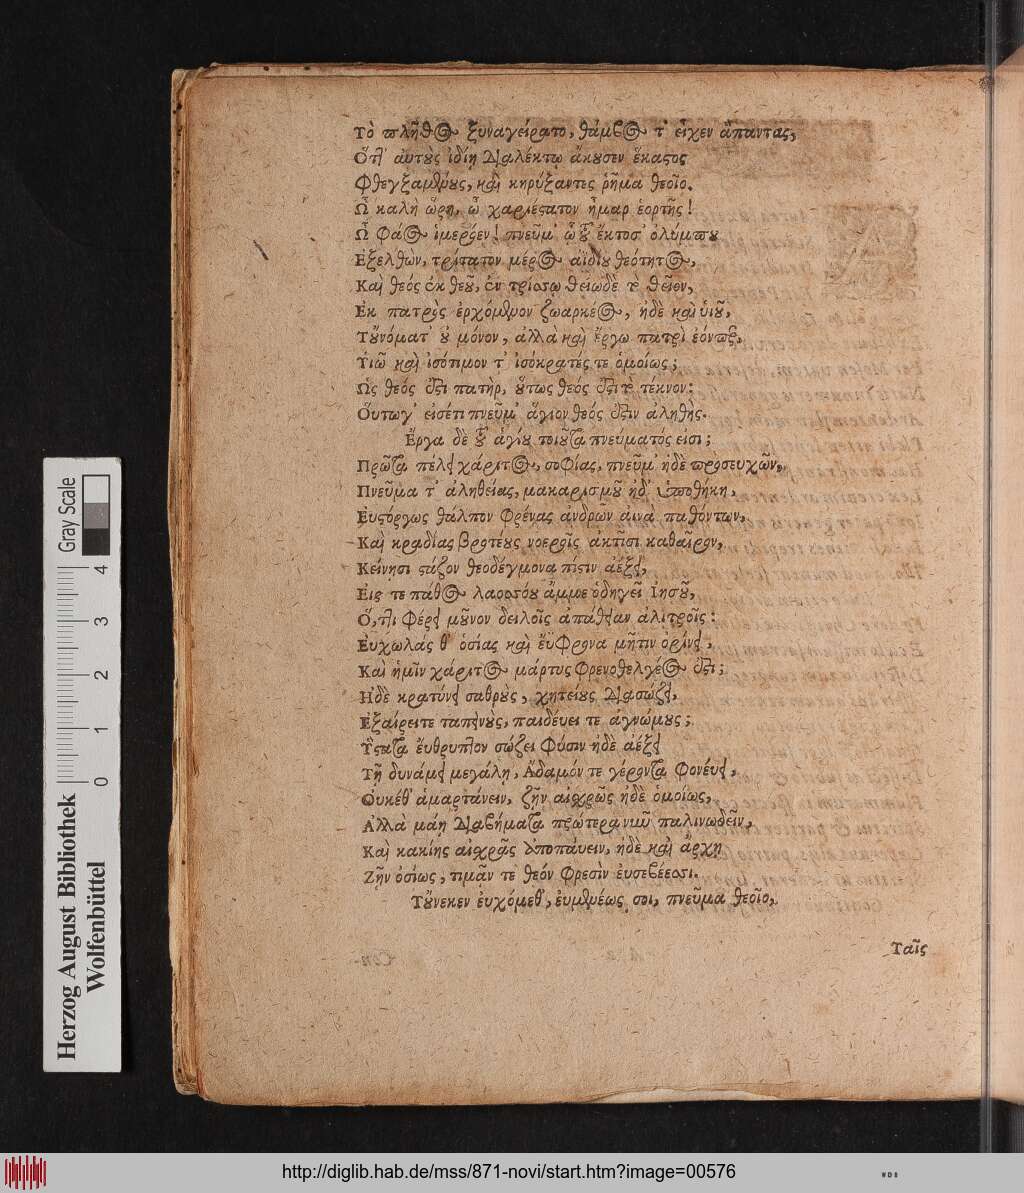 Τὸ πλῆθος ξυναγείρατο, θάμβος τ' εἶχεν ἅπαντας,
Ὅτι αὐτοὺς ἰδίῃ διαλέκτῳ ἄκουσεν ἕκαστος
Φθεγξαμένους, καὶ κηρύξαντες ῥῆμα θεοῖο.
Ὦ καλὴ ὥρη, ὦ χαριέστατον ἦμαρ ἑορτῆς!
Ὦ Φάος ἱμερόεν! πνεῦμ' ὦ τοῦ ἔκτοσ' ὀλύμπου
Ἐξελθὼν, τρίτατον μέρος αἰδίου θεότητος,
Καὶ θεός ἐκ θεοῦ, ἐν τρίσσῳ θείωδέ τε θεῖον,
Ἐκ πατρὸς ἐρχόμενον ζωαρκέος, ἠδὲ καὶ ὑιοῦ,
Τοὔνόματ' οὐ μόνον, ἀλλὰ καὶ ἔργῳ πατρὶ ἐόντος,
Ὑιῶ καὶ ἰσότιμον τ' ἰσόκρατές τε ὁμοίως;
Ὡς θεός ἐστι πατὴρ, οὕτως θεός ἐστι τὸ τέκνον:
Οὕτωγ' εἰσέτι πνεῦμ' ἅγιον θεός ἐστιν ἀληθής.
Ἔργα δὲ τοῦ ἁγίου τοιοῦτα πνεύματός εισι;
Πρῶτα πέλει χάριτος, σοφίας, πνεῦμ' ἠδὲ προσευχῶν,
Πνεῦμα τ' ἀληθείας, μακαρισμοῦ ἠδ' ὑποθήκη,
Ἐυστόργως θάλπον Φρένας ἀνδρῶν αἰνὰ παθόντων,
Καὶ κραδίας βροτέους νοεροῖς ἀκτῖσι καθαῖρον,
Κείνησι στάζον θεοδέγμονα πίστιν ἀέξει,
Εἰς τε πάθος λαοσσόου ἄμμε ὁδηγεῖ Ἰησοῦ,
Ὅ,τι Φέρει μοῦνον δειλοῖς ἀπάθειαν ἀλιτροῖς:
Ἐυχωλάς θ' ὁσίας καὶ ἔυφρονα μῆτιν ὀρίνει,
Καὶ ἡμῖν χάριτος μάρτυς Φρενοθελγέος ἐστι;
Ἠδὲ κρατύνει σαθροὺς, χητείους διασώζει,
Ἐξαίρειτε ταπεινοὺς, παιδέυει τε ἀγνώμους;
Ὕστατα ἔυθρυπτον σώζει Φύσιν ἠδὲ ἀέξει
Τῇ δυνάμει μεγάλῃ, Ἄδαμόν τε γέροντα Φονέυει,
Οὐκέθ' ἁμαρτάνειν, ζῆν αἰσχρῶς ἠδὲ ὁμοίως,
Ἀλλὰ μάῃ διαβήματα πρώτερα νιοῦ παλινωδεῖν,
Καὶ κακίης αἰσχρᾶς ἀποπάυειν, ἠδὲ καὶ ἄρχῃ
Ζῆν ὁσίως, τιμᾶν τε θεόν Φρεσὶν ἐυσεβέεσσι.
Τοὔνεκεν ἐυχόμεθ', ἐυμενέως σοι, πνεῦμα θεοῖο,
Ταῖς
Gray Scale
0 1 2 3 4
Herzog August Bibliothek
Wolfenbüttel
http://diglib.hab.de/mss/871-novi/start.htm?image=00576